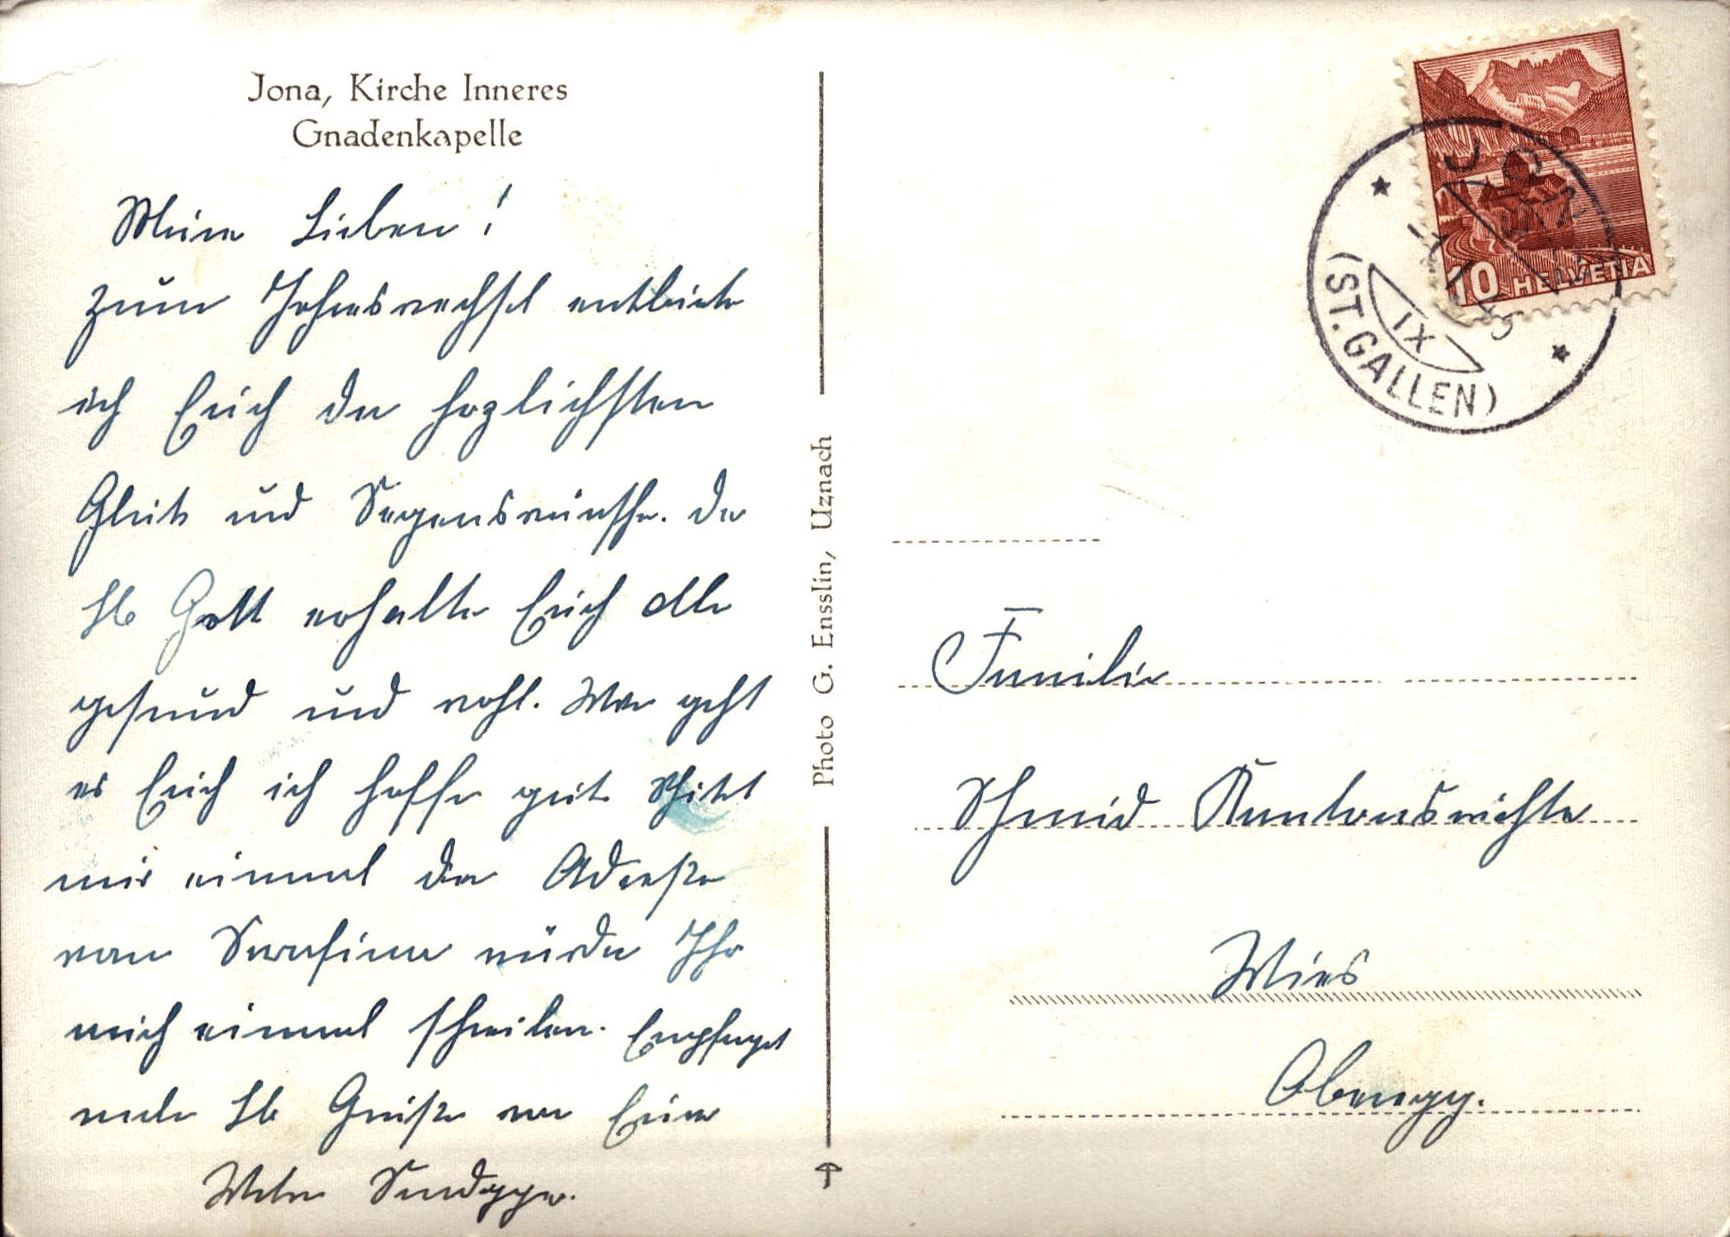 Jona, Kirche Inneres
Gnadenkapelle
Meine Lieben!
zum Jahreswechsel entbiete
ich Euch die herzlichsten
Glück und Segenswünsche. Der
lb Gott erhalte Euch alle
gesund und wohl. Wie geht
es Euch ich hoffe gut. Schikt
mir einmal die Adresse
von Serafina würde Ihr
auch einmal schreiben. Empfanget
viele lb Grüsse von Eurer
Sendgger.
Photo G. Ensslin, Uznach
JONA
IX
(ST. GALLEN)
10 HELVETIA
Familie
Schmid Kantonsrichter
Wies
Oberegg.